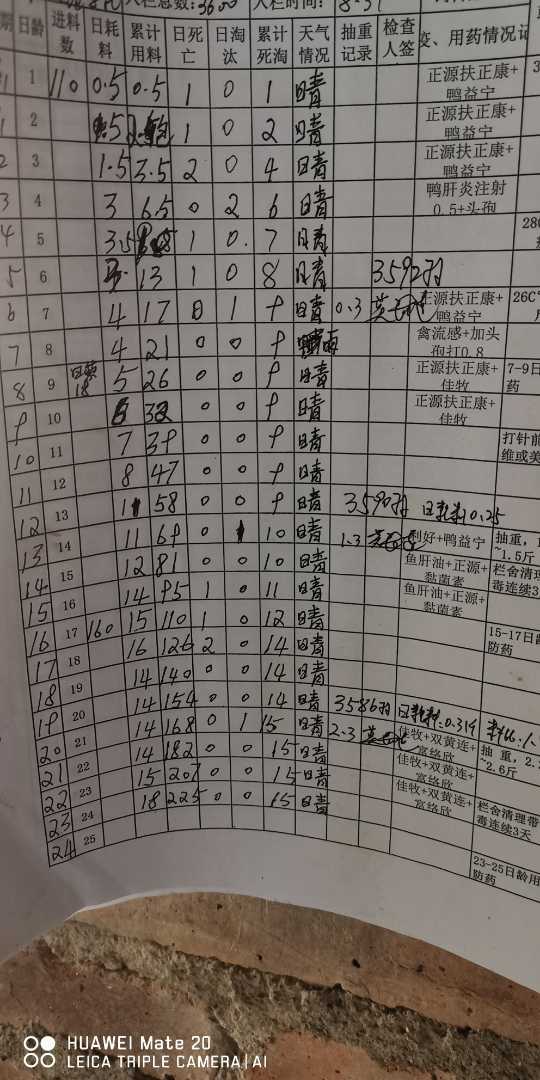 入栏总数:3600 入栏时间: 8-31
日龄 进料数 日耗料 累计用料 日死亡 日淘汰 累计死淘 天气情况 抽重记录 检查人签 疫、用药情况记
1 110 0.5 0.5 1 0 1 晴 正源扶正康+鸭益宁
2 1 0 2 晴 正源扶正康+鸭益宁
2 3 1.5 3.5 2 0 4 晴 正源扶正康+鸭益宁
3 4 3 6.5 0 2 6 晴 鸭肝炎注射0.5+头孢
4 5 3.5 1 0. 7 晴
5 6 13 1 0 8 晴 3592羽
6 7 4 17 0 1 9 晴 0.3 正源扶正康+鸭益宁 26C°
7 8 4 21 0 0 9 雨 禽流感+加头孢打0.8
8 9 18 5 26 0 0 9 晴 正源扶正康+佳牧 7-9日 药
9 10 32 0 0 9 晴 正源扶正康+佳牧
10 11 7 39 0 0 9 晴 打针前 维或美
11 12 8 47 0 0 9 晴
12 13 11 58 0 0 9 晴 3590羽 日耗料0.25
13 14 11 69 0 1 10 晴 1.3 利好+鸭益宁 抽重, ~1.5斤
14 15 12 81 0 0 10 晴 鱼肝油+正源+黏菌素 栏舍清理 毒连续3
15 16 14 95 1 0 11 晴 鱼肝油+正源+黏菌素
16 17 160 15 110 1 0 12 晴
17 18 16 126 2 0 14 晴 15-17日龄 防药
18 19 14 140 0 0 14 晴
19 20 14 154 0 0 14 晴 3586羽 日耗料0.319 料比:1.
20 21 14 168 0 1 15 晴 2.3 佳牧+双黄连+富络欣 抽 重,2. ~2.6斤
21 22 14 182 0 0 15 晴 佳牧+双黄连+富络欣
22 23 15 207 0 0 15 晴 佳牧+双黄连+富络欣
23 24 18 225 0 0 15 晴 栏舍清理带 毒连续3天
24 25
23-25日龄用 防药
HUAWEI Mate 20
LEICA TRIPLE CAMERA | AI